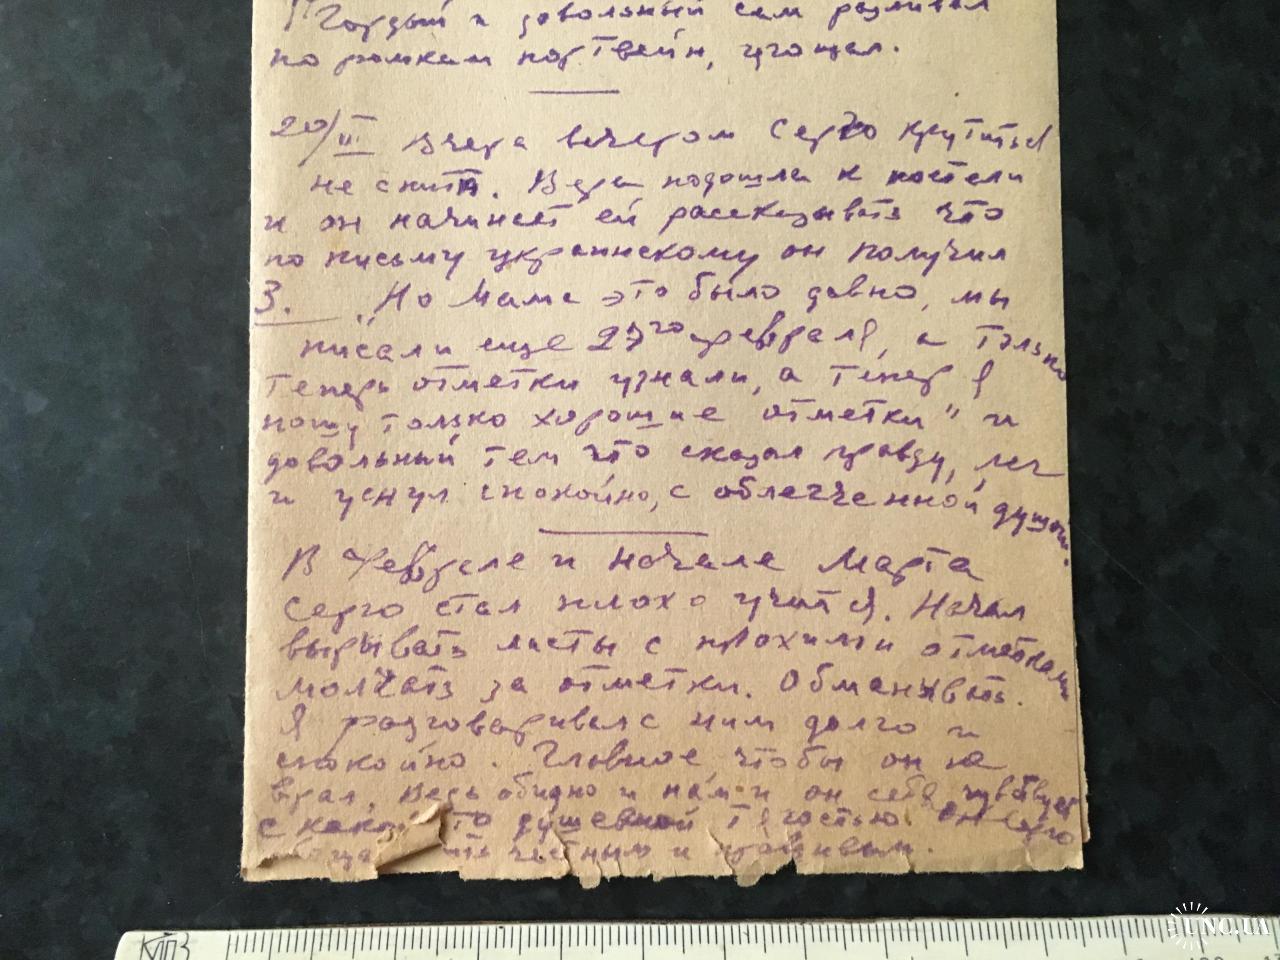 Гордый и довольный сам разливал
по рюмкам портвейн, угощал.
20/III Вчера вечером Серго крутиться
не спитъ. Вера подошла к постели
и он начинает ей рассказывать что
по письму украинскому он получил
3. „Но мама это было давно, мы
писали еще 27го февраля, а только
теперь отметки узнали, а тепер я
ношу только хорошие отметки" и
довольный тем что сказал правду, лег
и уснул спокойно, с облегченной душой.
В Феврале и начале Марта
Серго стал плохо учится. Начал
вырывать листы с плохими отметками
молчать за отметки. Обманывать.
Я разговаривал с ним долго и
спокойно. Главное, чтобы он не
врал, ведь обидно и нам и он себя чувствует
с какой то душевной тягостью. Он Серго
честным и правдивым.
КПЗ
UNC.UA